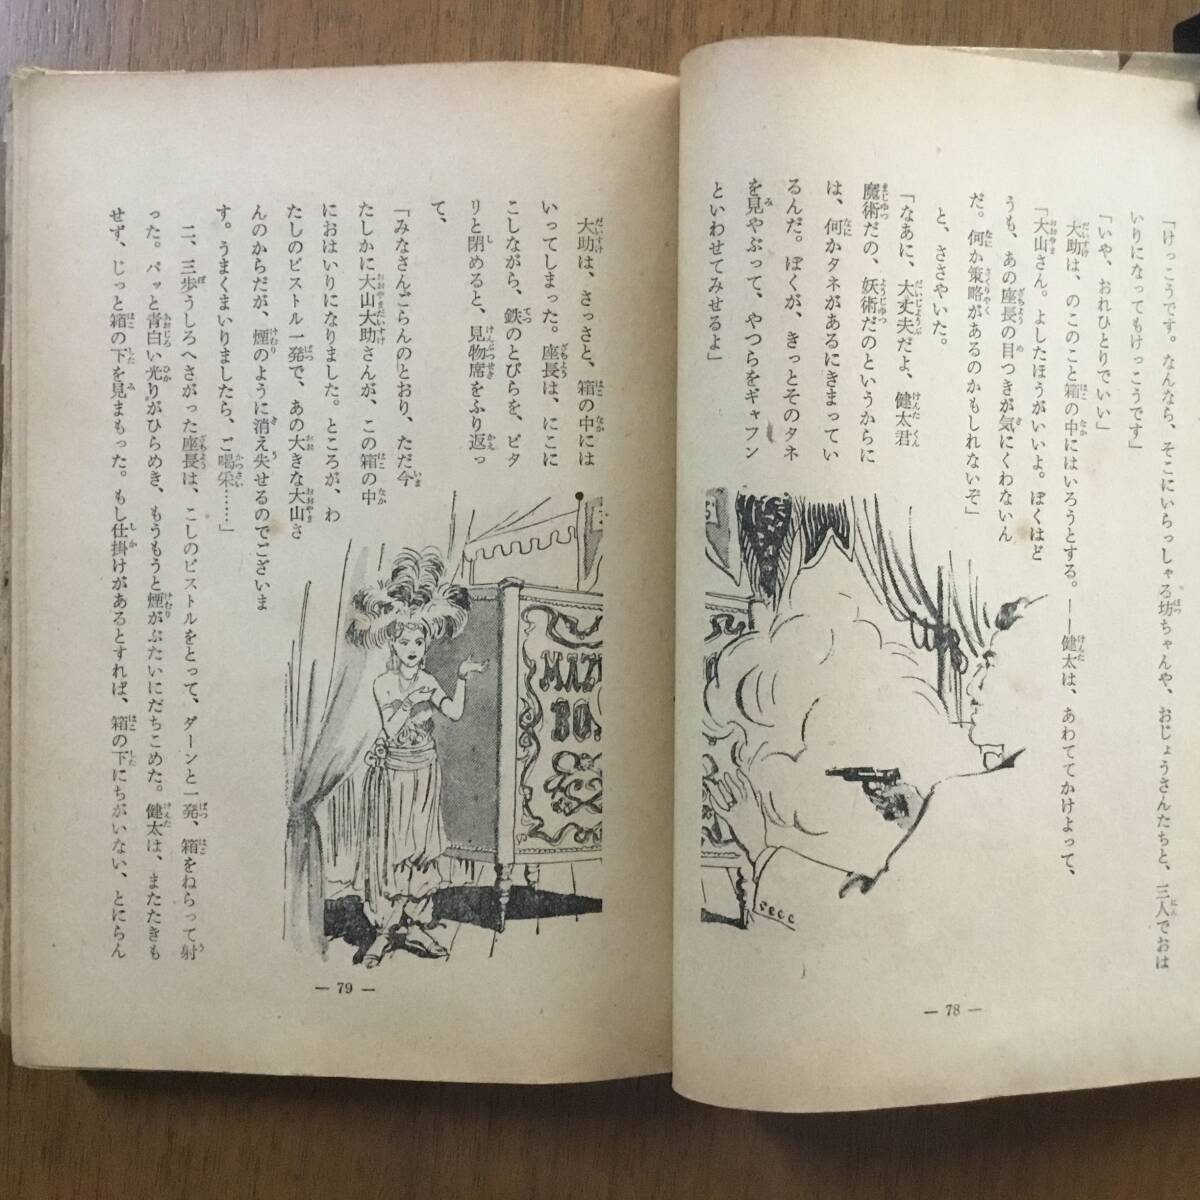 「けっこうです。なんなら、そこにいらっしゃる坊ちゃんや、おじょうさんたちと、三人でおは
いりになってもけっこうです」
「いや、おれひとりでいい」
大助は、のこのこと箱の中にはいろうとする。――健太は、あわててかけよって、
「大山さん。よしたほうがいいよ。ぼくはど
うも、あの座長の目つきが気にくわないん
だ。何か策略があるのかもしれないぞ」
と、ささやいた。
「なあに、大丈夫だよ、健太君
魔術だの、妖術だのというからに
は、何かタネがあるにきまってい
るんだ。ぼくが、きっとそのタネ
を見やぶって、やつらをギャフン
といわせてみせるよ」
— 78 —
大助は、さっさと、箱の中には
いってしまった。座長は、にこに
こしながら、鉄のとびらを、ピタ
リと閉めると、見物席をふり返っ
て、
「みなさんごらんのとおり、ただ今
たしかに大山大助さんが、この箱の中
におはいりになりました。ところが、わ
たしのピストル一発で、あの大きな大山さ
んのからだが、煙のように消え失せるのでございま
す。うまくまいりましたら、ご喝采……」
二、三歩うしろへさがった座長は、こしのピストルをとって、ダーンと一発、箱をねらって射
った。パッと青白い光りがひらめき、もうもうと煙がぶたいにだちこめた。健太は、またたきも
せず、じっと箱の下を見まもった。もし仕掛けがあるとすれば、箱の下にちがいない、とにらん
MAZ
BO
— 79 —